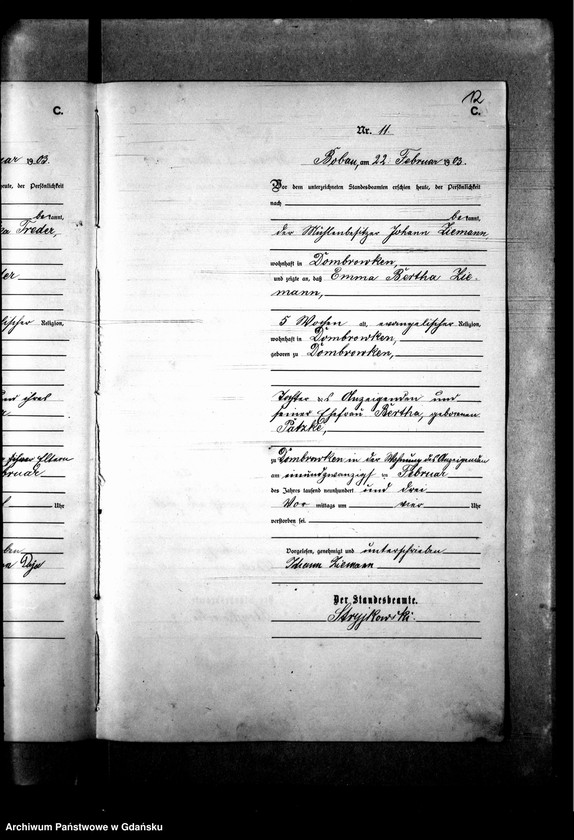 C.
uar 1903.
heute, der Persönlichkeit
be kannt,
Treder,
Religion,
und ihrer
Eltern
bruar
Uhr
12
C.
Nr. 11
Bobau, am 22 Februar 1903.
Vor dem unterzeichneten Standesbeamten erschien heute, der Persönlichkeit
nach
be kannt,
der Mühlenbesitzer Johann Ziemann,
wohnhaft in Dombrowken,
und zeigte an, daß Emma Bertha Zie-
mann,
5 Wochen alt, evangelischer Religion,
wohnhaft in Dombrowken,
geboren zu Dombrowken,
Tochter des Anzeigenden und
seiner Ehefrau Bertha, geborenen
Patzke,
zu Dombrowken in der Wohnung des Anzeigenden
am einundzwanzigsten Februar
des Jahres tausend neunhundert und drei
Vor mittags um vier Uhr
verstorben sei.
Vorgelesen, genehmigt und unterschrieben
Johann Ziemann
Der Standesbeamte.
Stryjkowski.
Archiwum Państwowe w Gdańsku